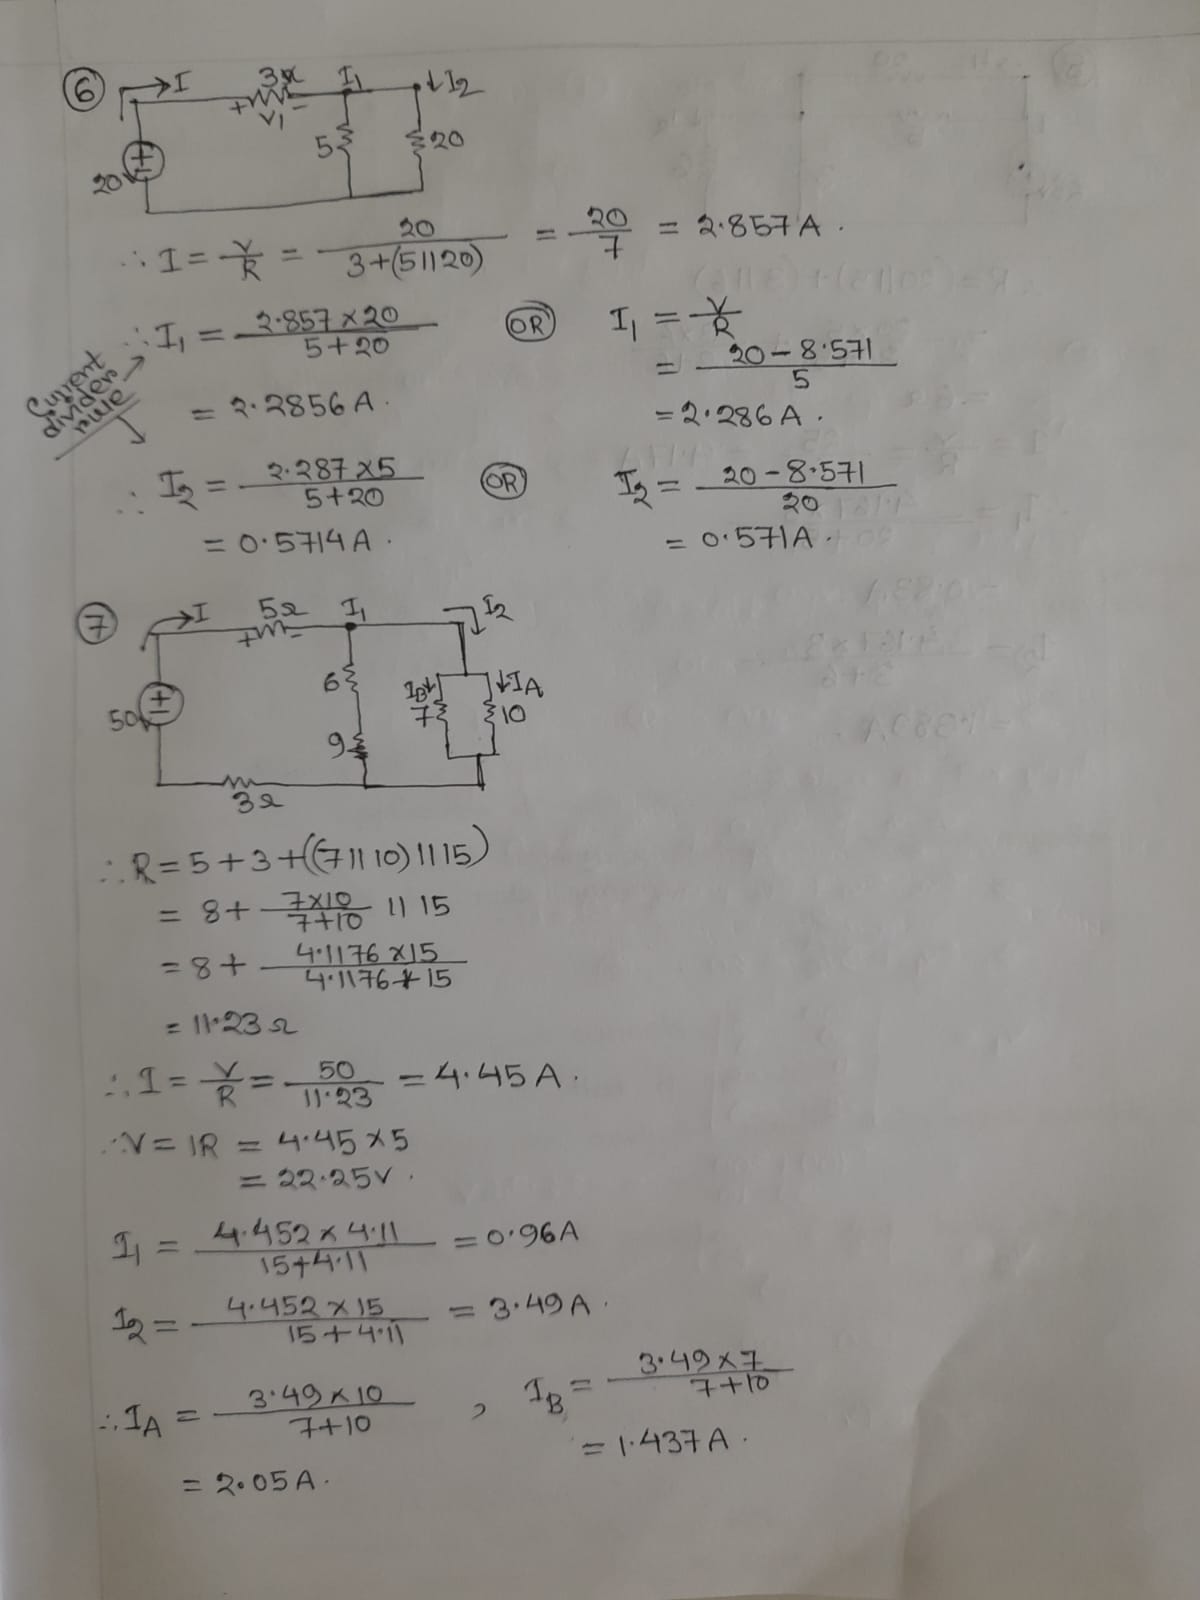 6
I 3Ω I₁ ↓I₂
+ V₁ -
5 20
20V
∴ I = V/R = 20/(3+(5||20)) = 20/7 = 2.857A.
∴ I₁ = (2.857×20)/(5+20) OR I₁ = V/R
Current divider rule
= (20-8.571)/5
= 2.2856A. = 2.286A.
∴ I₂ = (2.287×5)/(5+20) OR I₂ = (20-8.571)/20
= 0.5714A. = 0.571A.
7
I 5Ω I₁ I₂
+ -
6 I_B↓ ↓I_A
50V 7 10
9
3Ω
∴ R = 5+3+((7||10)||15)
= 8+ (7×10)/(7+10) || 15
= 8+ (4.1176×15)/(4.1176+15)
= 11.23Ω
∴ I = V/R = 50/11.23 = 4.45A.
∴ V = IR = 4.45×5
= 22.25V.
I₁ = (4.452×4.11)/(15+4.11) = 0.96A
I₂ = (4.452×15)/(15+4.11) = 3.49A.
∴ I_A = (3.49×10)/(7+10) , I_B = (3.49×7)/(7+10)
= 1.437A.
= 2.05A.